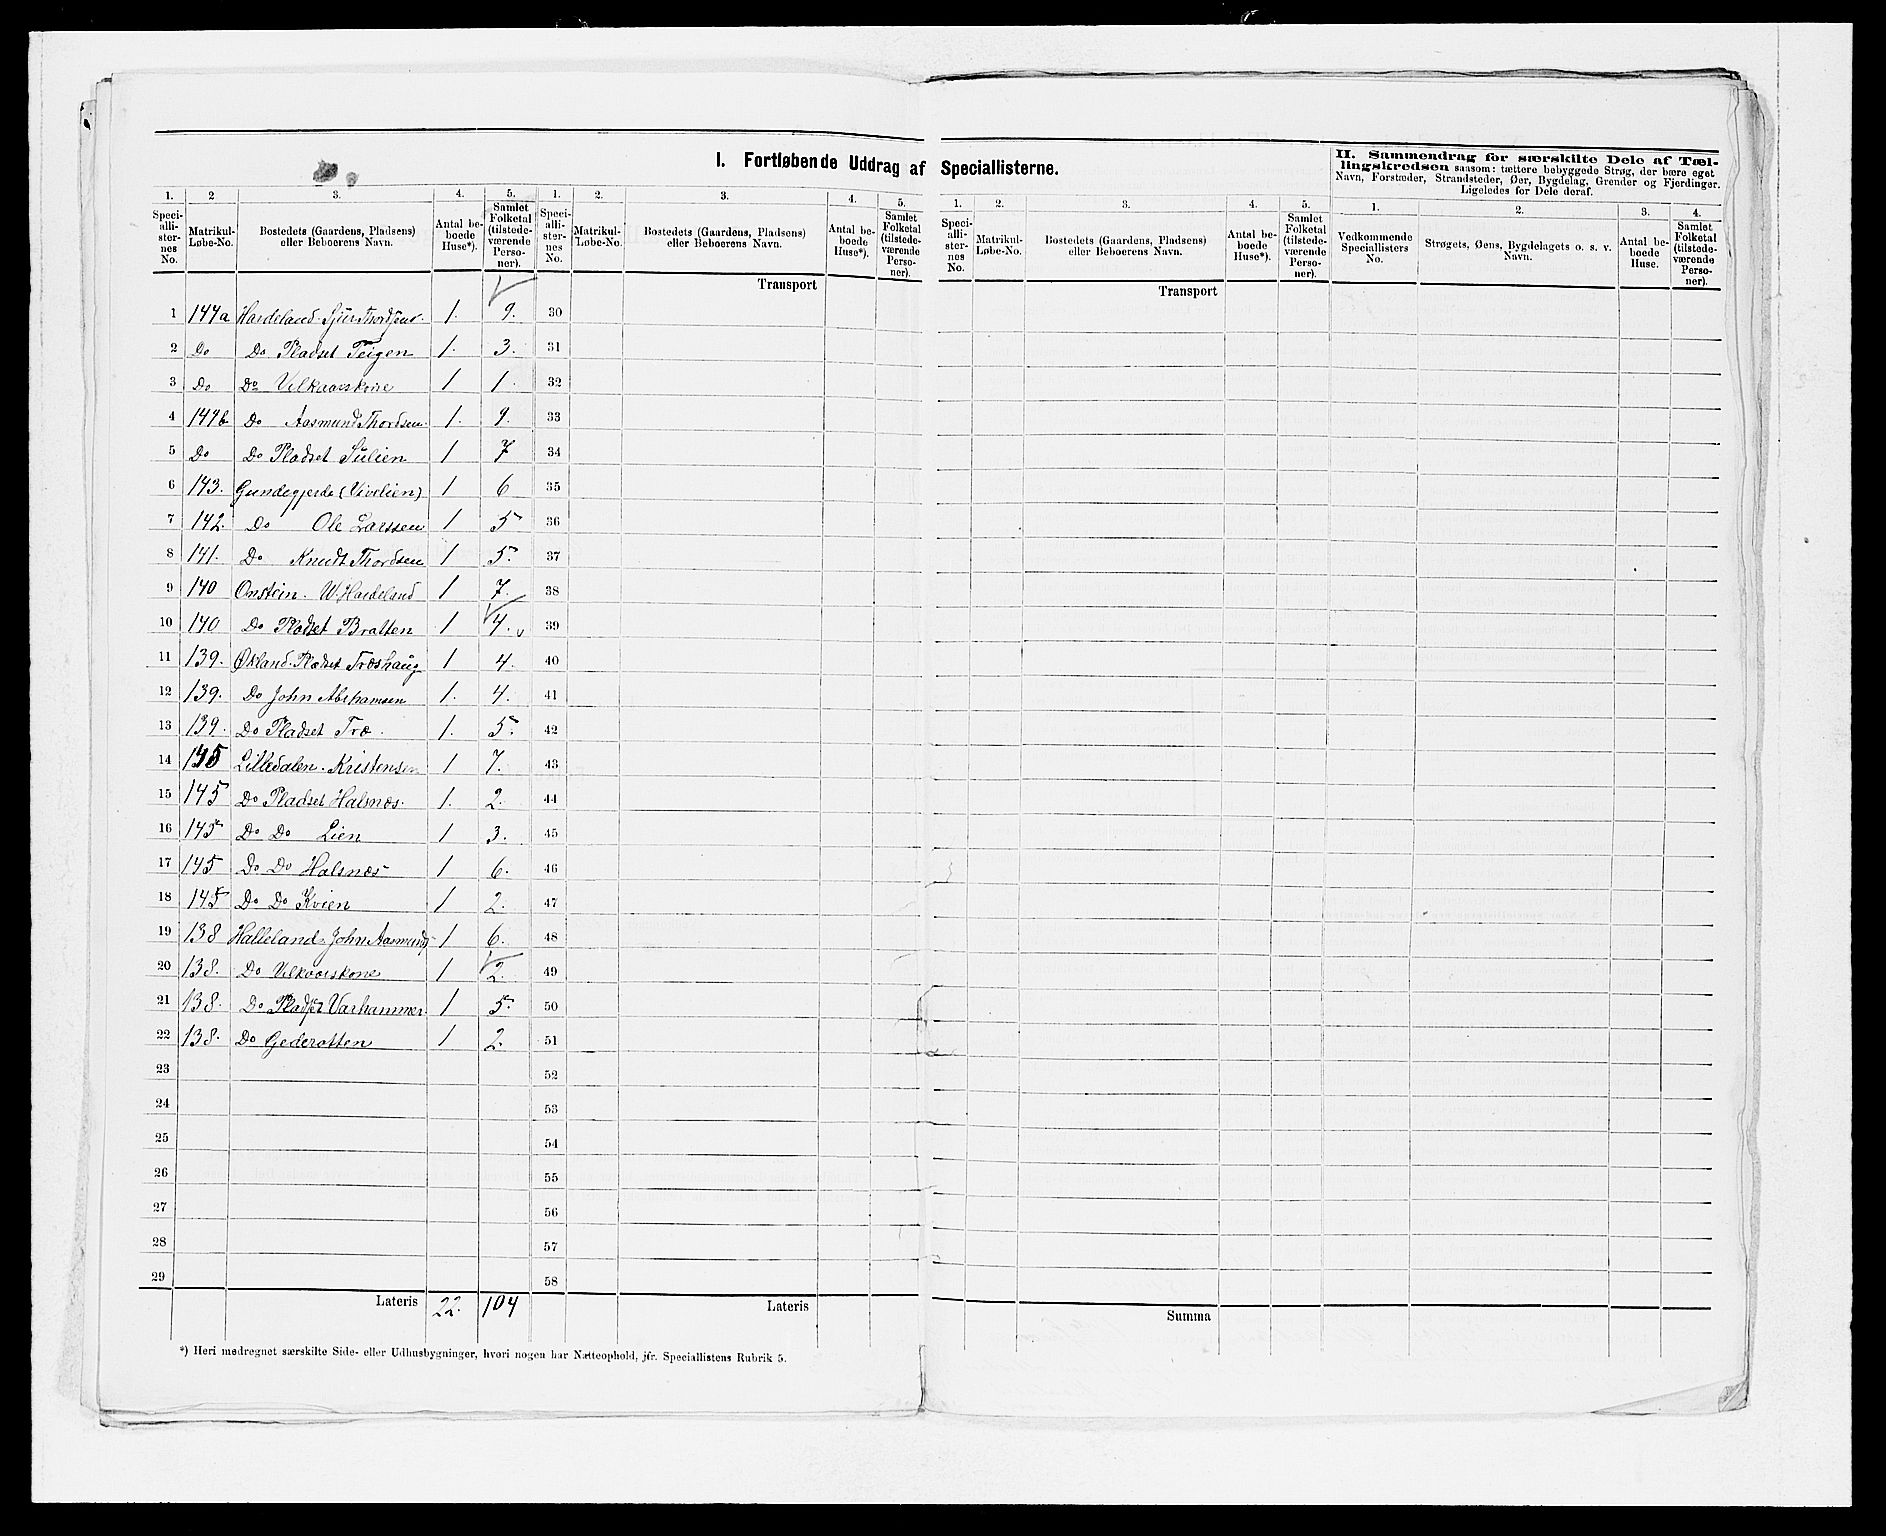 I. Fortløbende Uddrag af Speciallisterne.
1. 2 3. 4. 5. 1. 2. 3. 4. 5.
Speciallisternes No. Matrikul-Løbe-No. Bostedets (Gaardens, Pladsens) eller Beboerens Navn. Antal beboede Huse*). Samlet Folketal (tilstedeværende Personer).
Speciallisternes No. Matrikul-Løbe-No. Bostedets (Gaardens, Pladsens) eller Beboerens Navn. Antal beboede Huse*). Samlet Folketal (tilstedeværende Personer).
Transport
1 144a Hardeland. Sjur Thordsen. 1. 9. 30
2 Do Do Pladset Teigen 1. 3. 31
3 Do Do Vilkaarskone 1 1. 32
4 144b Do Aasmund Thordsen. 1. 9. 33
5 Do Do Pladset Sulien 1 7 34
6 143. Gundegjerde (Vivelien) 1 6 35
7 142. Do Ole Larssen 1 5 36
8 141. Do Knudt Thordsen 1 5. 37
9 140 Onstein. W. Hardeland 1 7. 38
10 140 Do Pladset Bratten 1 4. 39
11 139. Økland. Pladset Træshaug 1 4. 40
12 139. Do John Abrhamsen 1. 4. 41
13 139. Do Pladset Træ. 1. 5. 42
14 145 Lilledalen. Kristensen 1 7. 43
15 145 Do Pladset Halsnæs. 1. 2. 44
16 145 Do Do Lien 1 3. 45
17 145 Do Do Halsnæs 1 6. 46
18 145 Do Do Kvien 1 2. 47
19 138 Halleland. John Aasmunds 1 6. 48
20 138. Do Vilkaarskone 1 2. 49
21 138. Do Pladset Varhammer. 1 5. 50
22 138. Do Gederotten 1 2. 51
23 52
24 53
25 54
26 55
27 56
28 57
29 58
Lateris 22. 104 Lateris
*) Heri medregnet særskilte Side- eller Udhusbygninger, hvori nogen har Natteophold, jfr. Speciallistens Rubrik 5.
1. 2. 3. 4. 5.
Speciallisternes No. Matrikul-Løbe-No. Bostedets (Gaardens, Pladsens) eller Beboerens Navn. Antal beboede Huse*). Samlet Folketal (tilstedeværende Personer).
Transport
Summa
II. Sammendrag for særskilte Dele af Tællingskredsen saasom: tættere bebyggede Strøg, der bære eget
Navn, Forstæder, Strandsteder, Øer, Bygdelag, Grender og Fjerdinger.
Ligeledes for Dele deraf.
1. 2. 3. 4.
Vedkommende Speciallisters No. Strøgets, Øens, Bygdelagets o. s. v. Navn. Antal beboede Huse. Samlet Folketal (tilstedeværende Personer).